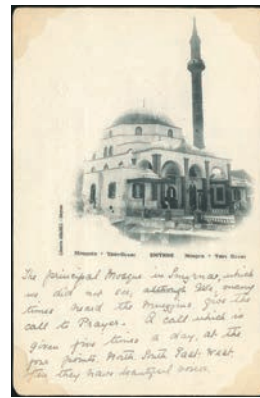 Mosquée - SMYRNE Mosque -
The principal Mosque in Smyrna, which
we did not see, although many
times heard the give the
call to Prayer. A call which is
given five times a day, at the
four points, North, South East West.
they have beautiful voices